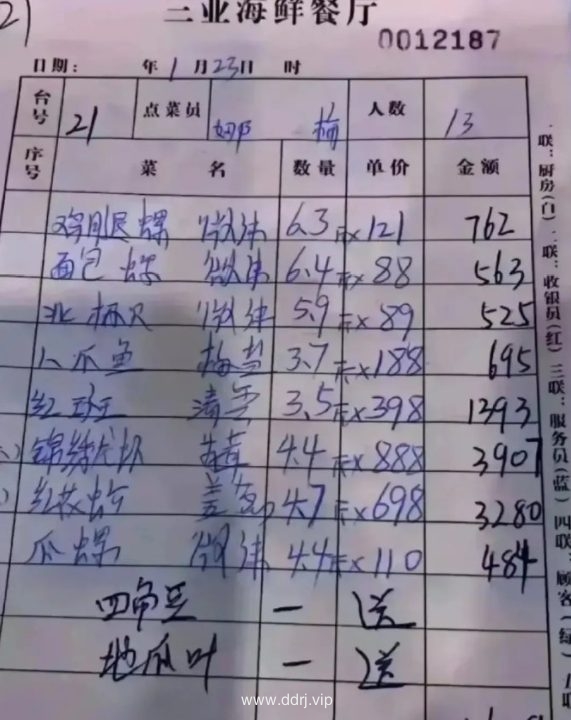 2)
三业海鲜餐厅
0012187
日期: 年1月23日 时
台号 21 点菜员 娜 梅 人数 13
序号 菜名 数量 单价 金额
鸡腿螺 微沸 6.3斤×121 762
面包螺 微沸 6.4斤×88 563
微沸 5.9斤×89 525
八爪鱼 3.7斤×188 695
红斑 清蒸 3.5斤×398 1393
锦绣龙虾 4.4斤×888 3907
红花蟹 姜葱 4.7斤×698 3280
爪螺 微沸 4.4斤×110 484
四角豆 一 送
地瓜叶 一 送
一联:厨房(白) 二联:收银员(红) 三联:服务员(蓝) 四联:顾客(绿)
www.ddrj.vip